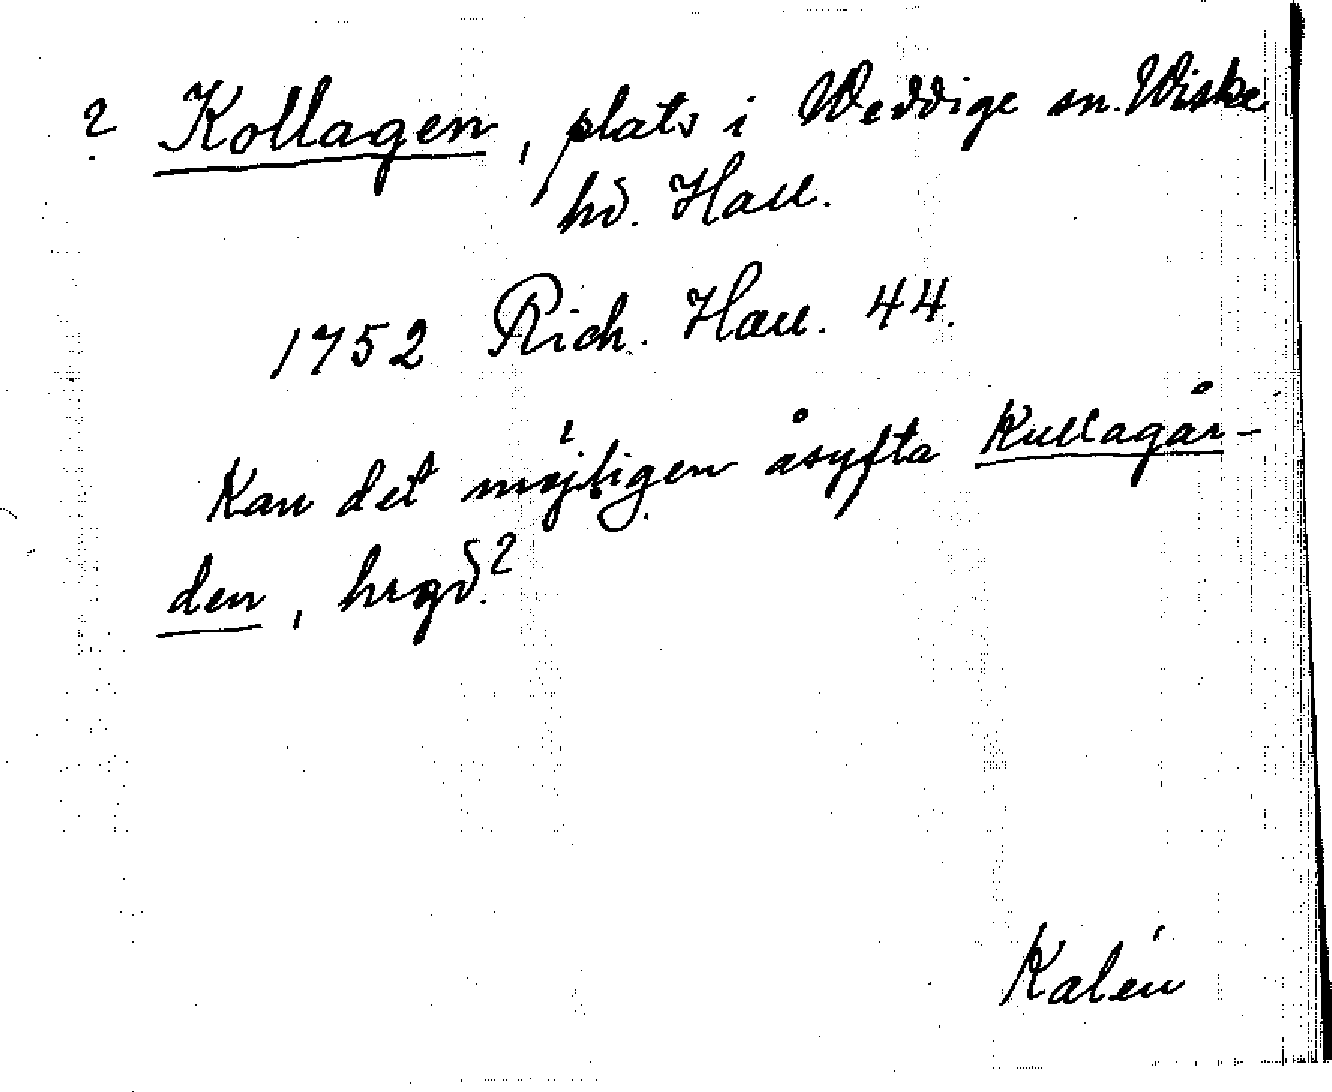 ? Kollagen, plats i Weddige sn. Wiske
hd. Hall.
1752 Rich. Hall. 44.
Kan det möjligen åsyfta Kullagår-
den, hrgd.?
Kalén